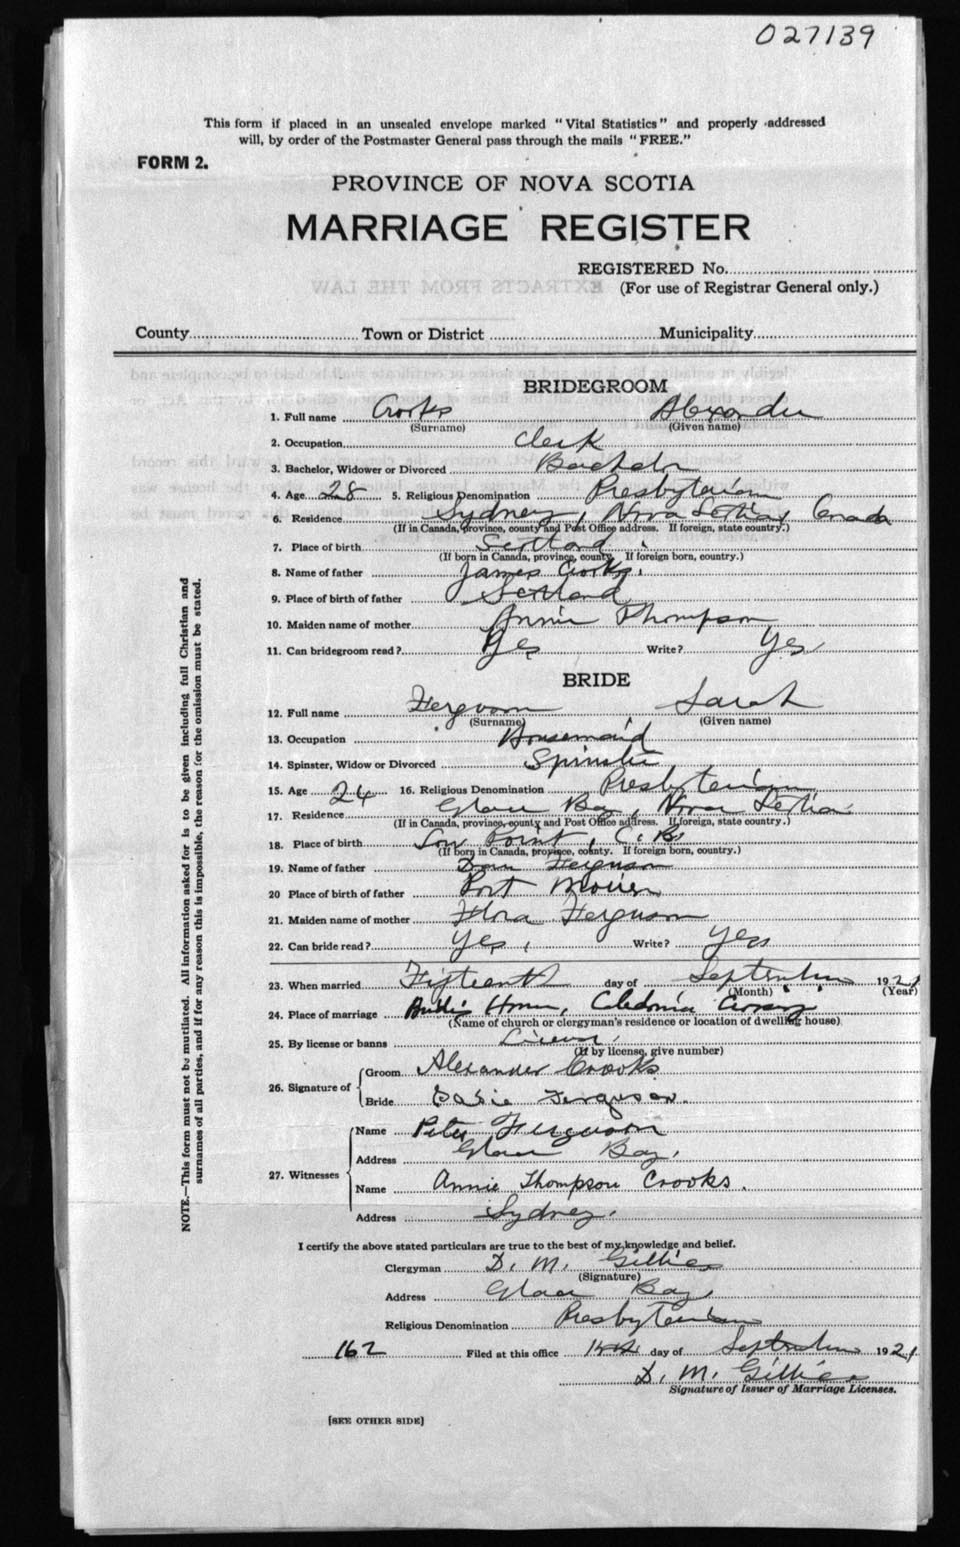 027139
This form if placed in an unsealed envelope marked "Vital Statistics" and properly addressed
will, by order of the Postmaster General pass through the mails "FREE."
FORM 2.
PROVINCE OF NOVA SCOTIA
MARRIAGE REGISTER
REGISTERED No.
(For use of Registrar General only.)
EXTRACTS FROM THE LAW
County Town or District Municipality
BRIDEGROOM
1. Full name Crooks Alexander
(Surname) (Given name)
2. Occupation Clerk
3. Bachelor, Widower or Divorced Bachelor
4. Age 28 5. Religious Denomination Presbyterian
6. Residence Sydney, Nova Scotia, Canada
(If in Canada, province, county and Post Office address. If foreign, state country.)
7. Place of birth Scotland
(If born in Canada, province, county, If foreign born, country.)
8. Name of father James Crooks.
9. Place of birth of father Scotland
10. Maiden name of mother Annie Thompson
11. Can bridegroom read? Yes Write? Yes
BRIDE
12. Full name Ferguson Sarah
(Surname) (Given name)
13. Occupation Housemaid
14. Spinster, Widow or Divorced Spinster
15. Age 24 16. Religious Denomination Presbyterian
17. Residence Glace Bay, Nova Scotia
(If in Canada, province, county and Post Office address. If foreign, state country.)
18. Place of birth Low Point, C. B.
(If born in Canada, province, county. If foreign born, country.)
19. Name of father Dan Ferguson
20 Place of birth of father Port Morien
21. Maiden name of mother Flora Ferguson
22. Can bride read? Yes, Write? Yes
23. When married Fifteenth day of September 1921
(Month) (Year)
24. Place of marriage Bride's Home, Caledonia Crossing
(Name of church or clergyman's residence or location of dwelling house)
25. By license or banns License
(If by license, give number)
26. Signature of Groom Alexander Crooks
Bride Sadie Ferguson.
27. Witnesses Name Peter Ferguson
Address Glace Bay.
Name Annie Thompson Crooks.
Address Sydney.
I certify the above stated particulars are true to the best of my knowledge and belief.
Clergyman D. M. Gillies
(Signature)
Address Glace Bay
Religious Denomination Presbyterian
162 Filed at this office day of September 1921
D. M. Gillies
Signature of Issuer of Marriage Licenses.
[SEE OTHER SIDE]
NOTE.—This form must not be mutilated. All information asked for is to be given including full Christian and
surnames of all parties, and if for any reason this is impossible, the reason for the omission must be stated.